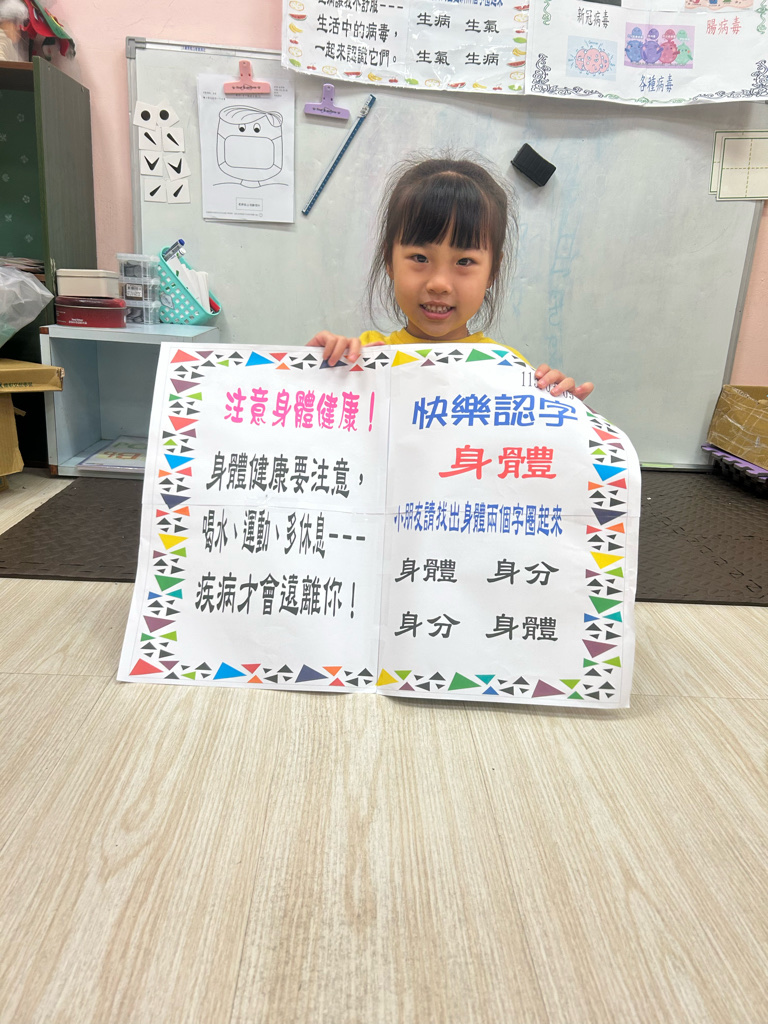 生活中的病毒，
一起來認識它們。
生病 生氣
生氣 生病
新冠病毒
腸病毒
各種病毒
注意身體健康！
身體健康要注意，
喝水、運動、多休息---
疾病才會遠離你！
快樂認字
身體
小朋友請找出身體兩個字圈起來
身體 身分
身分 身體